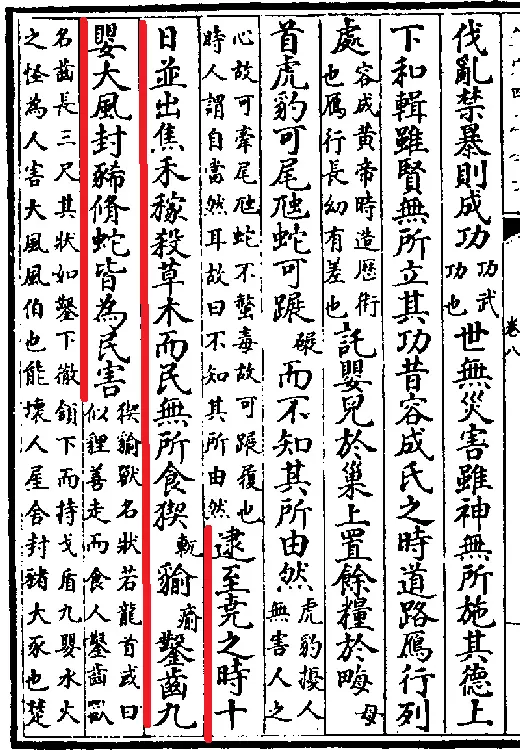 伐亂禁暴則成功功武功也世無災害雖神無所施其德上
下和輯雖賢無所立其功昔容成氏之時道路鴈行列
處容成黃帝時造歷術也鴈行長幼有差也託嬰兒於巢上置餘糧於畮母
首虎豹可尾虺蛇可蹍碾而不知其所由然虎豹擾人無害人之
心故可牽尾虺蛇不螫毒故可蹍履也時人謂自當然耳故曰不知其所由然逮至堯之時十
日並出焦禾稼殺草木而民無所食猰軋貐瘉鑿齒九
嬰大風封豨脩蛇皆為民害猰貐獸名狀若龍首或曰似貍善走而食人鑿齒獸
名齒長三尺其狀如鑿下徹頷下而持戈盾九嬰水火之怪為人害大風風伯也能壞人屋舍封豨大豕也楚
卷八